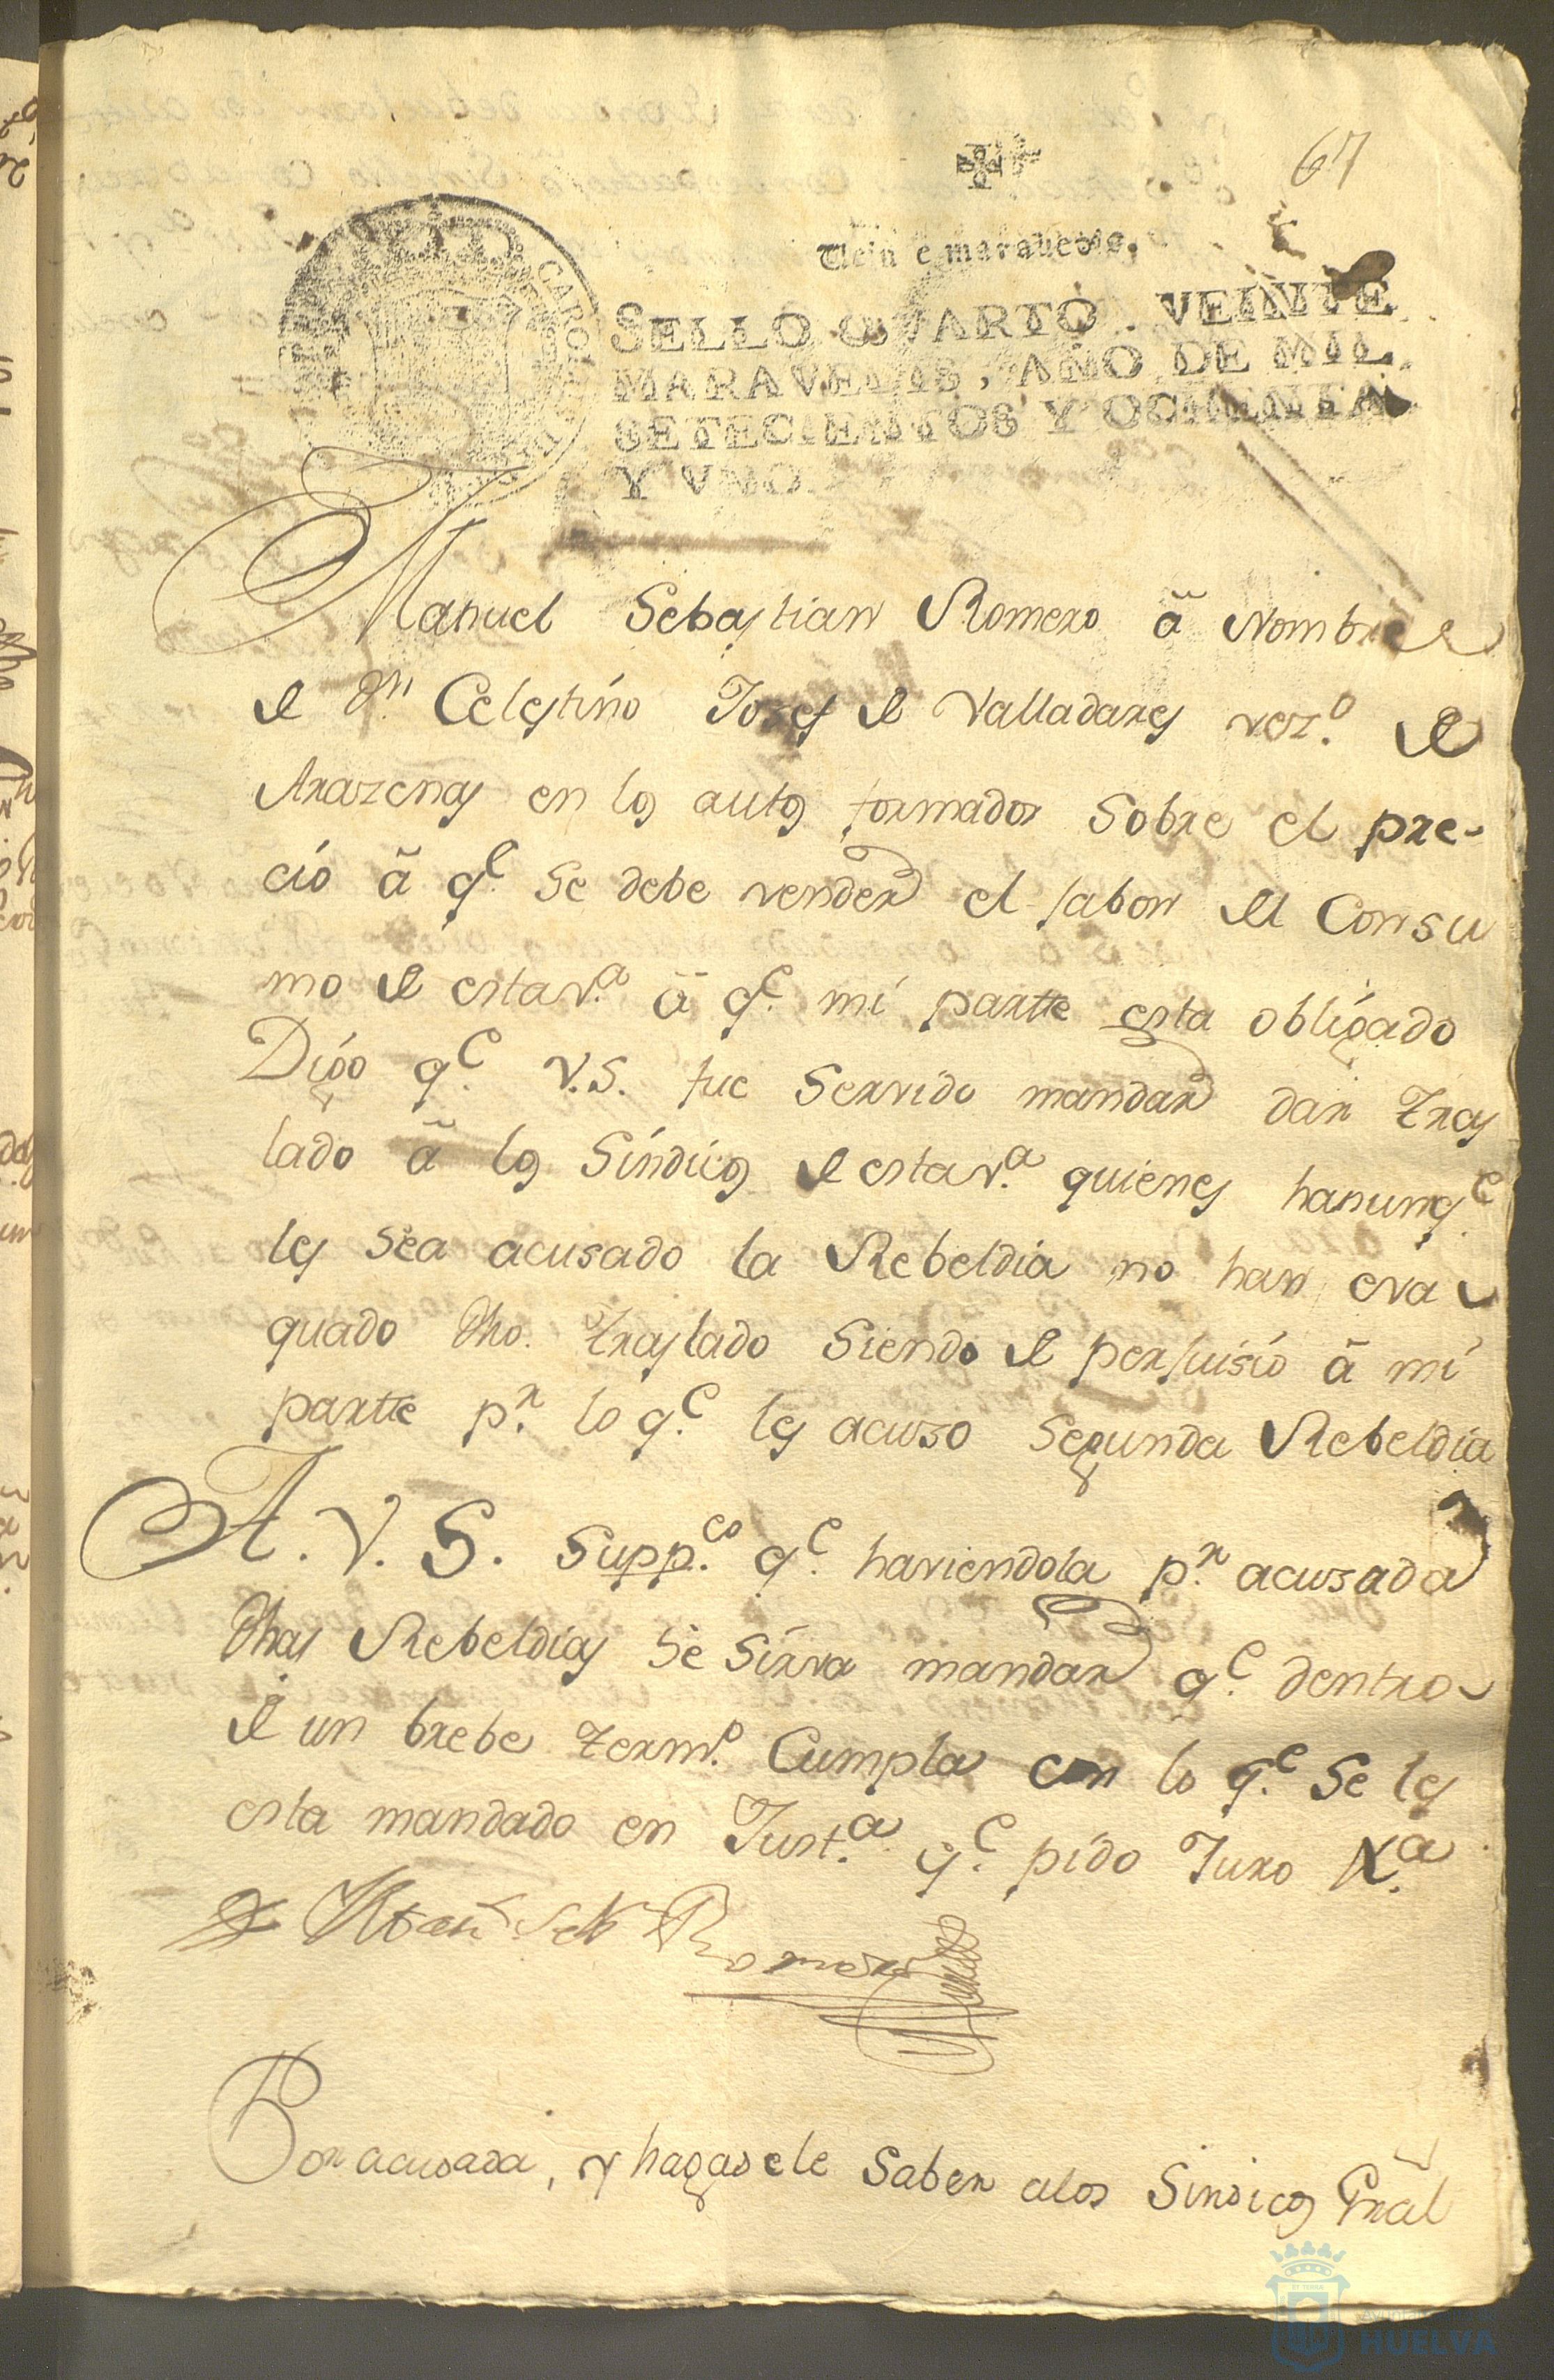 67
Uein e marauedis.
SELLO QVARTO, VEINTE
MARAVEDIS, AÑO DE MIL
SETECIENTOS Y OCHENTA
Y VNO.
Manuel Sebastian Romero ã Nombre
de Dn. Celestino Josef de Valladares vez.o de
Arazenas en los autos formados sobre el pre-
cio ã q.e se debe vender el Jabon del Consu
mo de esta v.a ã q.e mi partte esta obligado
Digo q.e V.S. fue servido mandar dar tras
lado ã los Síndicos de esta v.a quienes haunq.e
les sea acusado la Rebeldia no han eva
quado dho. traslado siendo de perjuisio ã mi
partte p.r lo q.e les acuso segunda Rebeldia
A. V. S. Supp.co q.e haviendola p.r acusada
dhas Rebeldias se sirva mandar q.e dentro
de un brebe term.o Cumpla con lo q.e se les
esta mandado en Just.a q.e pido Juro N.a
Man Seb Romero
Por acusada, y hagasele saber a los Sindicos Gral
Ayuntamiento de
HUELVA